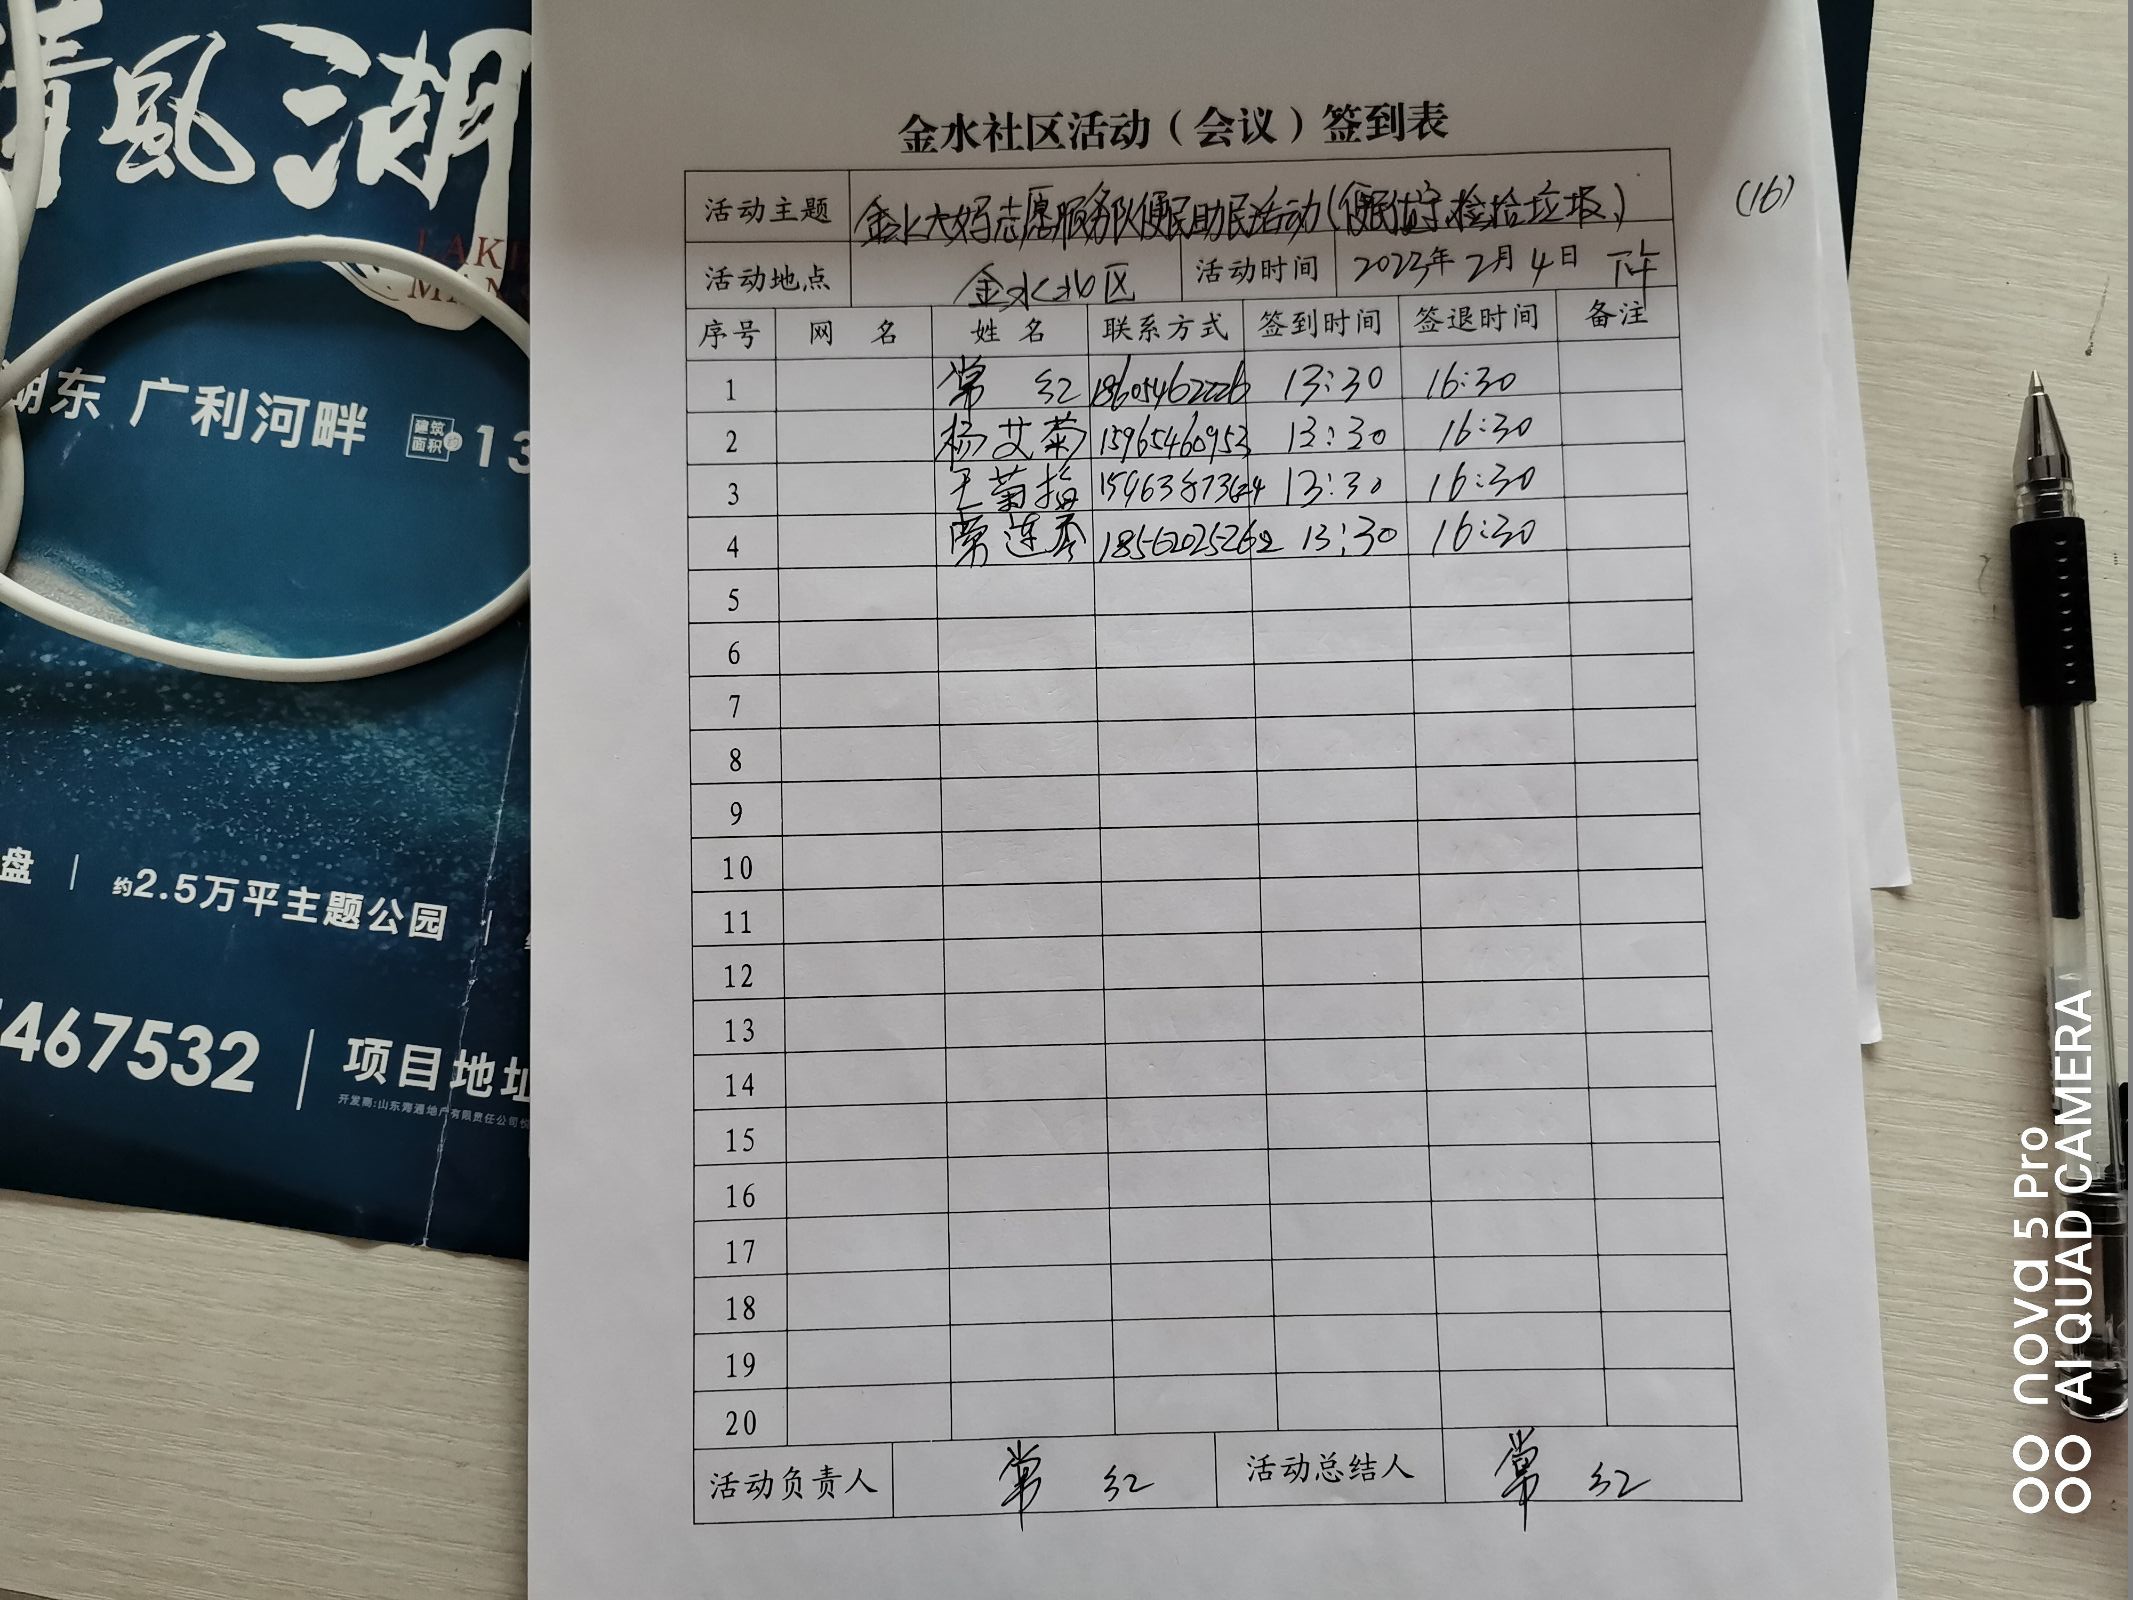 清風湖
LAKE
湖东 广利河畔 建筑面积约13
盘 | 约2.5万平主题公园 |
467532 | 项目地址
开发商:山东海通地产有限责任公司
金水社区活动（会议）签到表
(16)
活动主题 金水大妈志愿服务队便民助民活动(便民值守、捡拾垃圾)
活动地点 金水北区 活动时间 2023年2月4日 下午
序号 网 名 姓 名 联系方式 签到时间 签退时间 备注
1 常 红 18605462226 13:30 16:30
2 杨艾菊 15965460953 13:30 16:30
3 王菊梅 13:30 16:30
4 常连香 13:30 16:30
5
6
7
8
9
10
11
12
13
14
15
16
17
18
19
20
活动负责人 常 红 活动总结人 常 红
nova 5 Pro
AI QUAD CAMERA